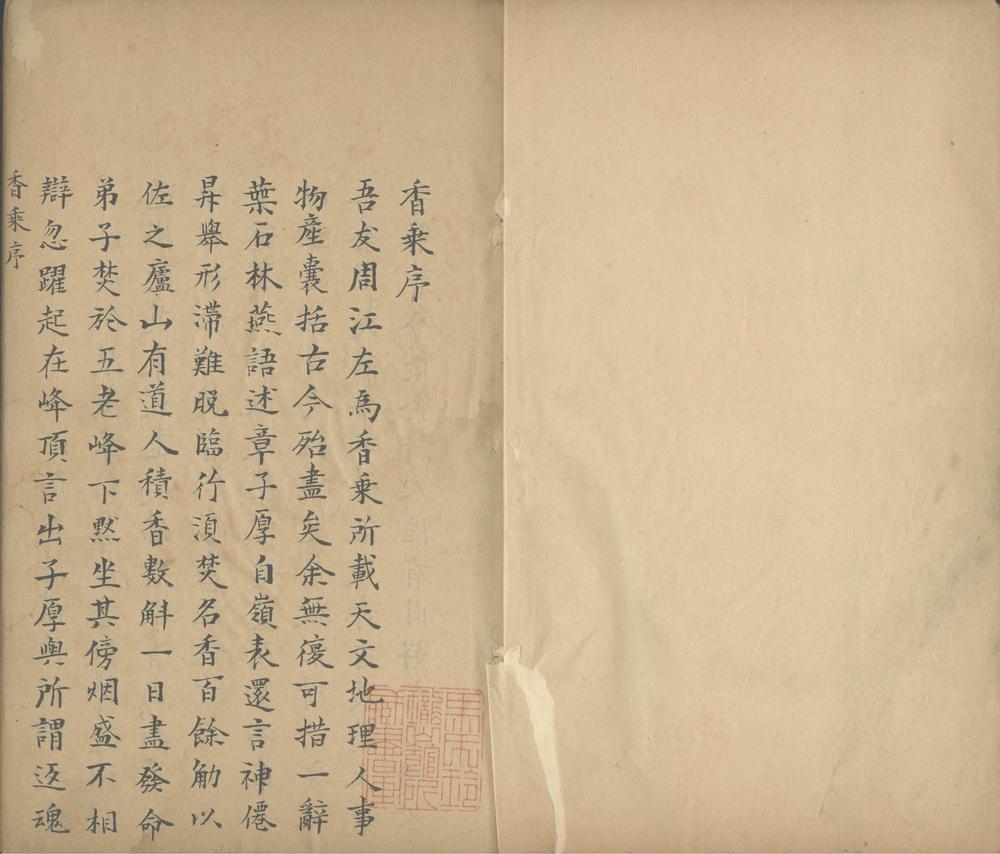 香乘序
吾友周江左爲香乘所載天文地理人事
物產囊括古今殆盡矣余無復可措一辭
葉石林燕語述章子厚自嶺表還言神僊
昇舉形滯難脫臨行湏焚名香百餘觔以
佐之廬山有道人積香數斛一日盡發命
弟子焚於五老峰下黙坐其傍烟盛不相
辯忽躍起在峰頂言出子厚與所謂返魂
香乘序